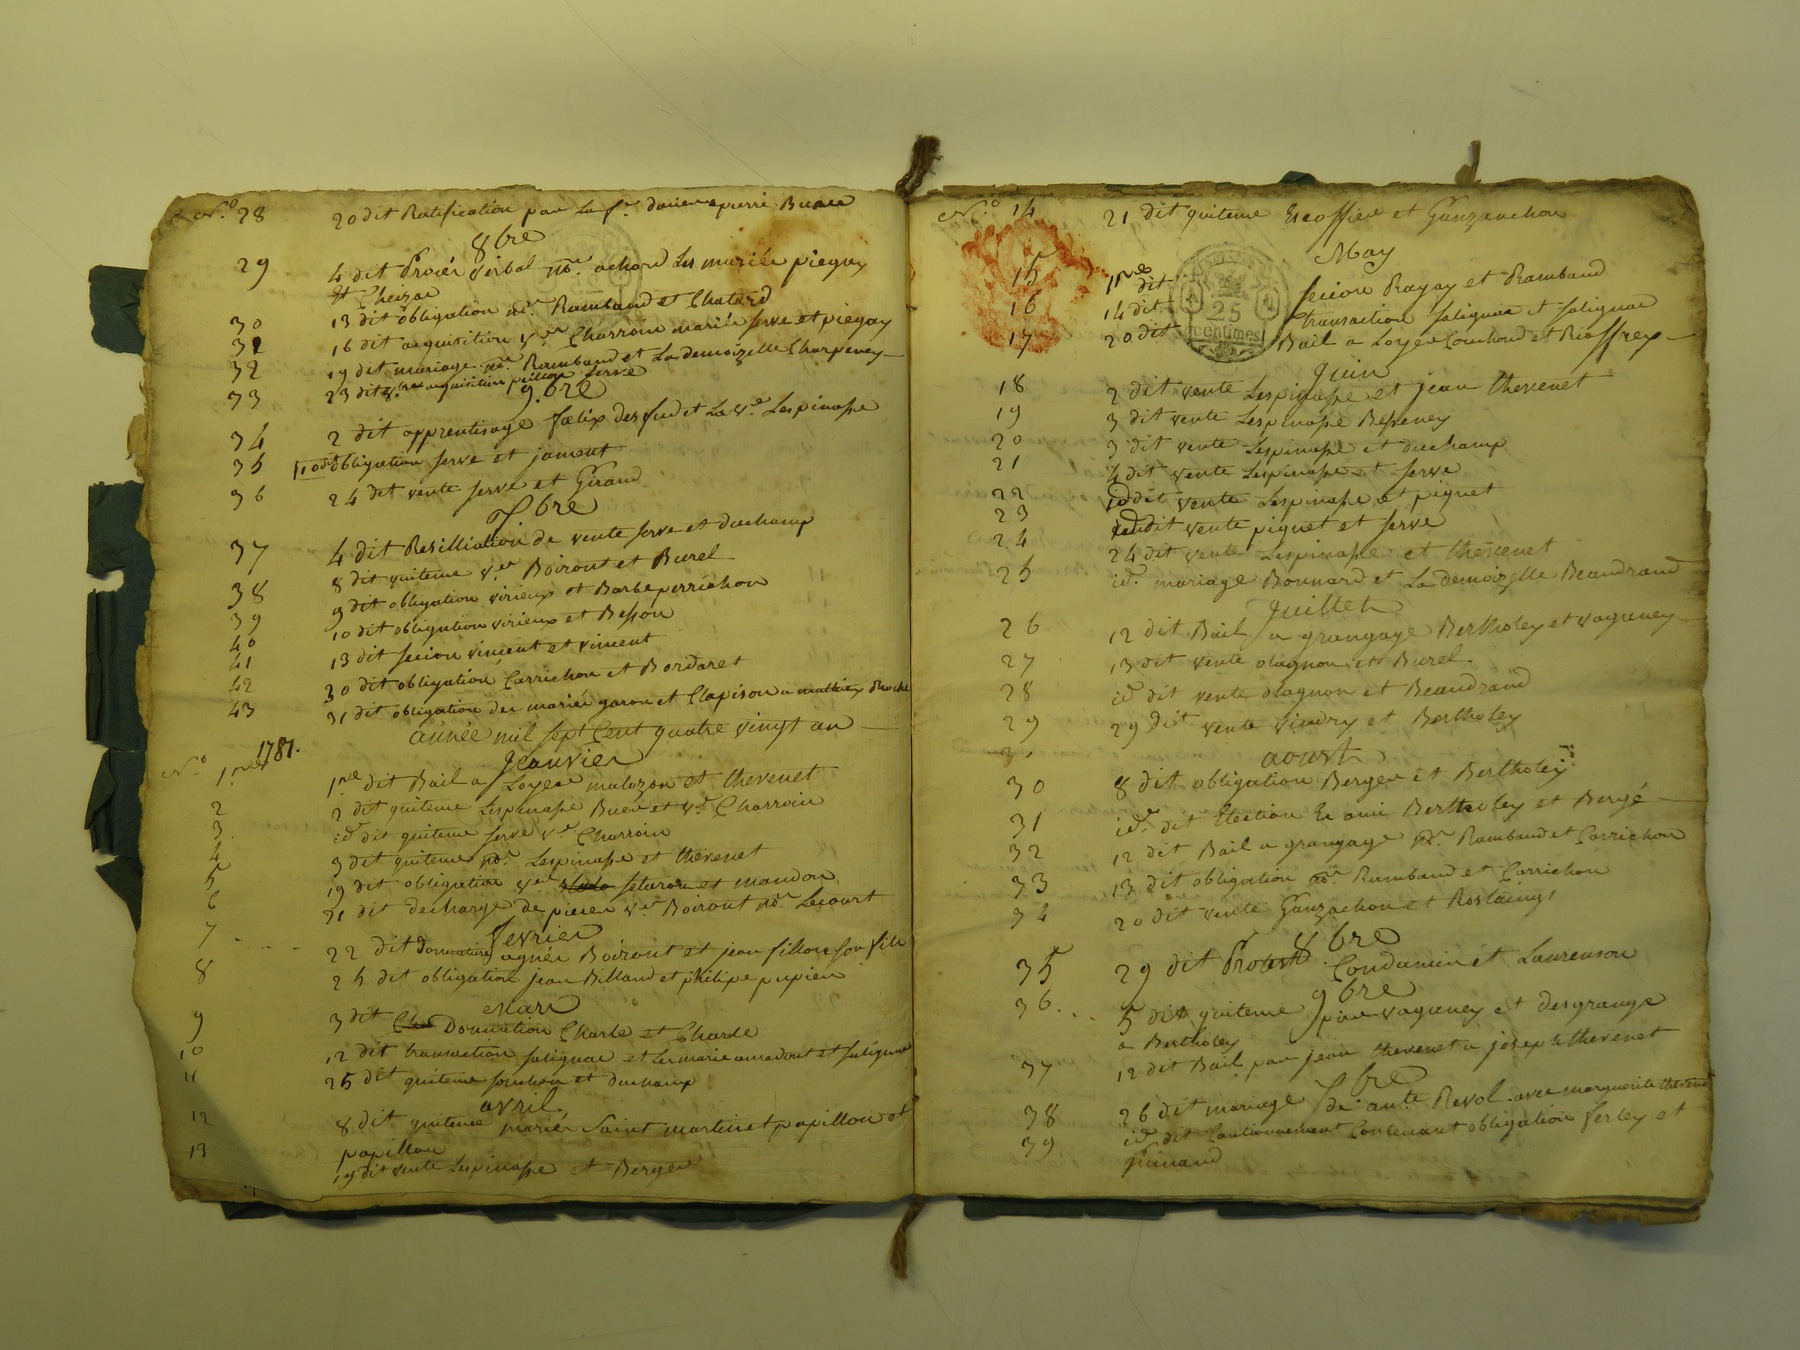 N.º 28 20 dit Ratification par la f.e pierre
8bre
29 4 dit Procés verbal mr. achard les mariés piegay
et Cheizae
30 13 dit obligation mr. Rambaud et Chatard
31 16 dit acquisition v.ve Charroin mariés serve et piegay
32 19 dit mariage mr. Rambaud et La demoizelle Charpeney
33 23 dit acquisition serve
9.bre
34 2 dit apprentisage fœlix et La v.e Lespinasse
35 11 dit obligation serve et jamont
36 24 dit vente serve et Giraud
xbre
37 4 dit Resilliation de vente serve et duchamp
38 8 dit quitence v.ve Boiront et Burel
39 9 dit obligation virieux et Barbe perrichon
40 10 dit obligation virieux et Besson
41 13 dit vincent et vincent
42 30 dit obligation Carrichon et Bordaret
43 31 dit obligation des mariés garon et Clapison a mathieu
année mil sept Cent quatre vingt un
1781.
Janvier
N.º 1.er 1er dit Bail a Loyer malozon et thevenet
2 2 dit quitence Lespinasse et v.e Charroin
3 id dit quitence serve v.e Charroin
4 3 dit quitence mr. Lespinasse et thevenet
5 19 dit obligation v.ve et mandon
6 31 dit decharge de pieces v.ve Boiront mr. Lecourt
fevrier
7 22 dit Donnation agnés Boiront et jean fillon son fils
8 25 dit obligation jean Billaud et philipe pupier
mars
9 3 dit Donnation Charle et Charle
10 12 dit transaction salignac et Les mariés et salignac
11 25 dit quitence et duchamp
avril
12 8 dit quitence mariés saint martin et papillon et
papillon
13 19 dit vente Lespinasse et Berger
N.º 14 21 dit quitence Escoffier et Ganzanchon
May
15 1er dit Ragay et Rambaud
16 14 dit transaction salignac et salignac
17 20 dit Bail a Loyer Couchoud et Rioffrey
25 centimes
Juin
18 2 dit vente Lespinasse et jean thevenet
19 3 dit vente Lespinasse Besseney
20 3 dit vente Lespinasse et duchamp
21 4 dit vente Lespinasse et serve
22 id dit vente Lespinasse et piguet
23 id dit vente piguet et serve
24 24 dit vente Lespinasse et thevenet
25 id. mariage Bonnard et La demoizelle Beaudrand
Juillet
26 12 dit Bail a grangage Bertholey et vagneney
27 13 dit vente olagnon et Burel
28 id dit vente olagnon et Beaudrand
29 29 dit vente vindry et Bertholey
aoust
30 8 dit obligation Berger et Bertholey
31 id. dit Election En ami Bertholey et Bergé
32 12 dit Bail a grangage mr. Rambaud et Carrichon
33 13 dit obligation mr. Rambaud et Carrichon
34 20 dit vente Ganzachon et Roslaings
8bre
35 29 dit Protest Condamin et Laurenson
9bre
36 5 dit quitence par vagneney et desgrange
a Bertholey
37 12 dit Bail par jean thevenet a joseph thevenet
xbre
38 26 dit mariage de ant.e Revol avec marguerite thevenet
39 id dit Cautionnement Contenant obligation Verley et